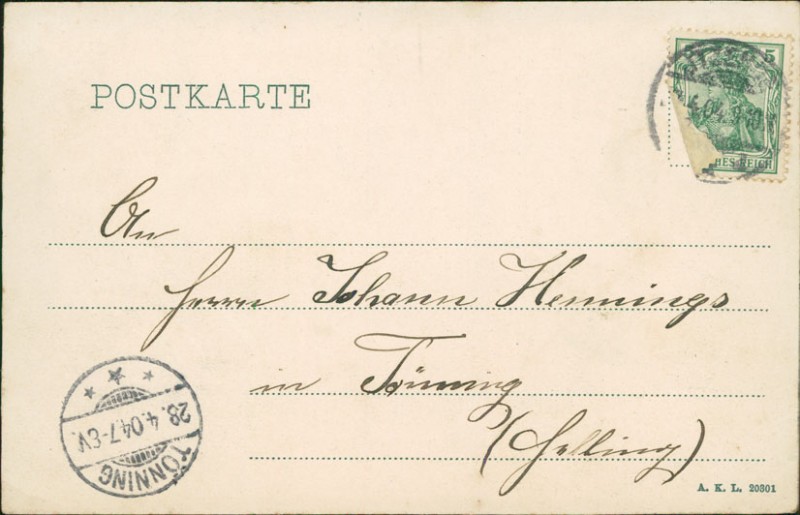 POSTKARTE
5
4.04.
HES REICH
An
Herrn Johann Hennings
in Tönning
(Helling)
28.4.04.7-8V.
TÖNNING
A. K. L. 20301